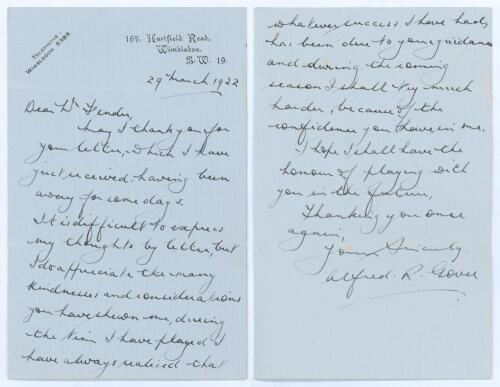 TELEPHONE -
WIMBLEDON 5388.
167. Hartfield Road,
Wimbledon.
S.W. 19.
29 March 1932
Dear Mr Fender,
May I thank you for
your letter, which I have
just received, having been
away for some days.
It is difficult to express
my thoughts by letter, but
I do appreciate the many
kindnesses and considerations
you have shewn me, during
the time I have played I
have always realised that
whatever success I have had,
has been due to your guidance
and during the coming
season I shall try much
harder, because of the
confidence you have in me.
I hope I shall have the
honour of playing with
you in the future,
Thanking you once
again,
Yours Sincerely
Alfred. R. Gover